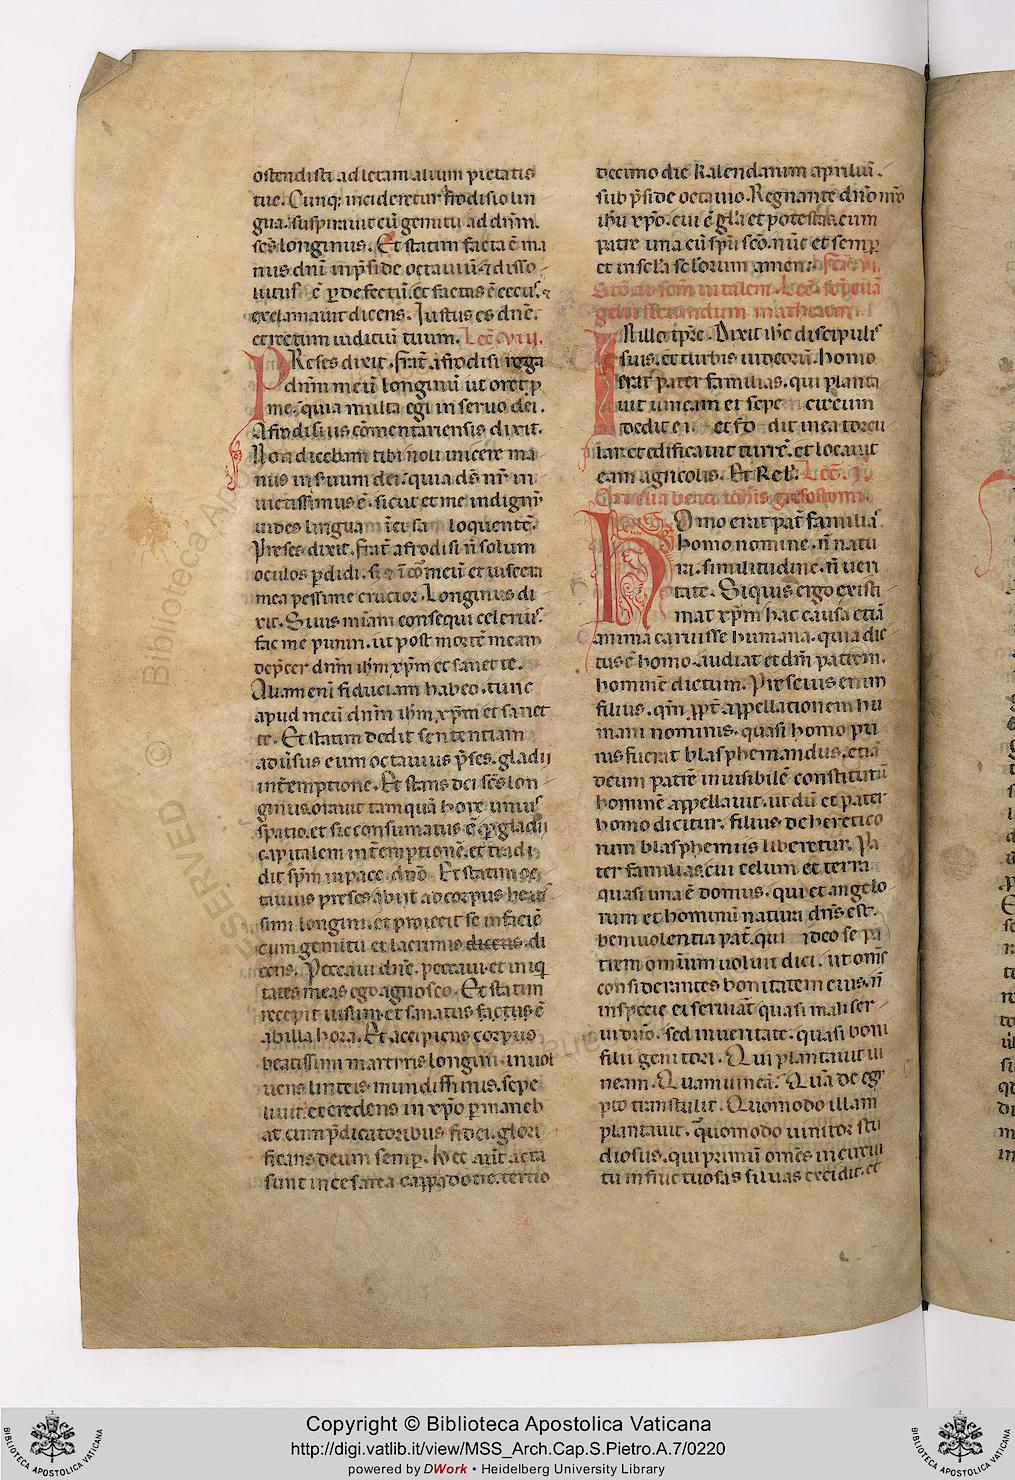 ostendisti ad letam aluum pietatis
tue. Cunq; incideretur afrodisio lin
gua. suspirauit cũ gemitu ad dñm.
scs longinus. Et statim facta ẽ ma
nus dñi inp̃side octauiũ ⁊ disso
lutus ẽ p defectũ. et factus ẽ cecus. ⁊
exclamauit dicens. Iustus es dñe.
et rectum iudiciũ tuum. Lec̃. viij.
PReses dixit. frat̃ afrodisi roga
dñm meũ longinũ ut oret p
me. quia multa egi in seruo dei.
Afrodisius cõmentariensis dixit.
Non dicebam tibi noli inicere ma
nus in seruum dei. quia ds nr̃ in
uictissimus ẽ. sicut et me indignũ
uides lingua loquentẽ.
Preses dixit. frat̃ afrodisi ñ solum
oculos pdidi. cor meũ et uiscera
mea pessime crucior. Longinus di
xit. Si uis miãm consequi celerius.
fac me puniri. ut post mortẽ meam
dep̃cer dñm ihm xpm et sanet te.
Quam enĩ fiduciam habeo. tunc
apud meũ dñm ihm xpm et sanet
te. Et statim dedit sententiam
aduersus eum octauius p̃ses. gladij
intẽemptione. Et stans dei scs lon
ginus. orauit tamquã hore unius
spatio. et sic consumatus ẽ. p gladij
capitalem intẽemptionẽ. et tradi
dit spm in pace dño. Et statim oc
tauius preses abijt ad corpus beatis
simi longini. et proiecit se in faciẽ
cum gemitu et lacrimis dicens. di
cens. Peccaui dñe. peccaui. et iniqi
tates meas ego agnosco. Et statim
recepit uisum. et sanatus factus ẽ
ab illa hora. Et accipiens corpus
beatissimi martyris longini. inuol
uens linteis mundissimis. sepe
liuit. et credens in xpo pmaneb
at cum p̃dicatoribus fidei. glori
ficans deum semp. Hec aut̃ acta
sunt in cesarea cappadocie. tertio
decimo die kalendarum aprilium.
sub p̃side octauio. Regnante dño nro
ihu xpo. cui ẽ gla et potestas cum
patre una cũ spu sco. nũc et semp
et in scla sclorum amen. Feria vi.
scdm. mathęum.
IN illo tpre. Dixit ihc discipulis
suis. et turbis iudeorũ. homo
erat pater familias. qui planta
uit uineam et sepe circum
dedit ei. et fo dit in ea torcu
lar. et edificauit turrẽ. et locauit
eam agricolis. Et Rel. Lec̃. j.
Omelia beati iohis grisostomi.
HOmo erat pat̃ familias.
homo nomine. ñ natu
ra. similitudine. ñ ueri
tate. Siquis ergo existi
mat xpm hac causa etiã
anima caruisse humana. quia dic
tus ẽ homo. audiat et dm patrem.
hominẽ dictum. Presciens enim
filius. qm ppt̃ appellationem hu
mani nominis. quasi homo pu
rus fuerat blasphemandus. etiã
deum patrẽ inuisibilẽ constitutũ
hominẽ appellauit. ut dũ et pater
homo dicitur. filius de heretico
rum blasphemiis liberetur. Pa
ter familias. cui celum et terra
quasi una ẽ domus. qui et angelo
rum et hominũ natura dñs est.
beniuolentia pat̃. qui ideo se pa
trem omnium uoluit dici. ut oms
considerantes bonitatem eius. ñ
in specie ei seruiãt quasi mali ser
ui dño. sed in ueritate. quasi boni
filii genitori. Qui plantauit ui
neam. Quam uineã? Quã de egi
pto transtulit. Quomodo illam
plantauit. quomodo uinitor stu
diosus. qui primũ omẽs in circui
tu infructuosas siluas excidit. et
Copyright © Biblioteca Apostolica Vaticana
http://digi.vatlib.it/view/MSS_Arch.Cap.S.Pietro.A.7/0220
powered by DWork • Heidelberg University Library
BIBLIOTECA APOSTOLICA VATICANA
BIBLIOTECA APOSTOLICA VATICANA